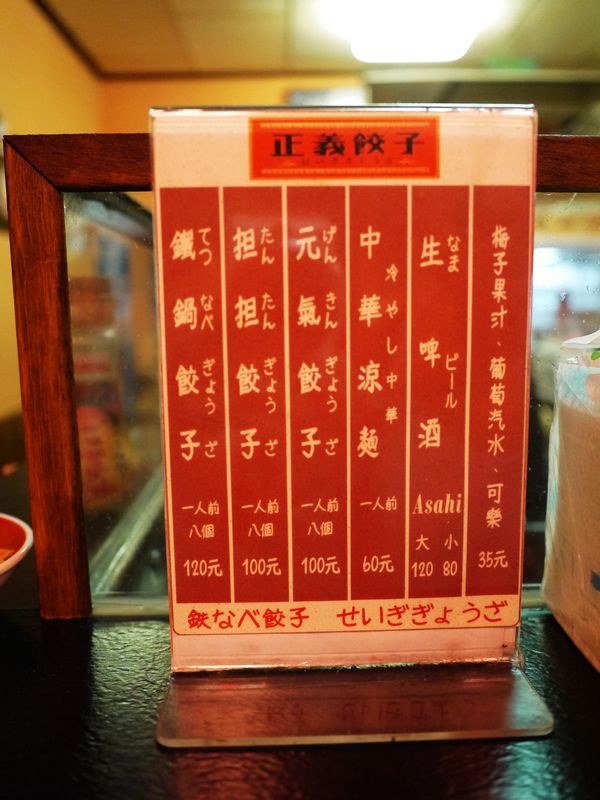 正義餃子
梅子果汁、葡萄汽水、可樂
35元
生啤酒
なま ビール
Asahi
大 小
120 80
中華涼麵
冷やし中華
一人前
60元
元氣餃子
げん きん ぎょうざ
一人前
八個
100元
担担餃子
たん たん ぎょうざ
一人前
八個
100元
鐵鍋餃子
てつ なべ ぎょうざ
一人前
八個
120元
鉄なべ餃子 せいぎぎょうざ